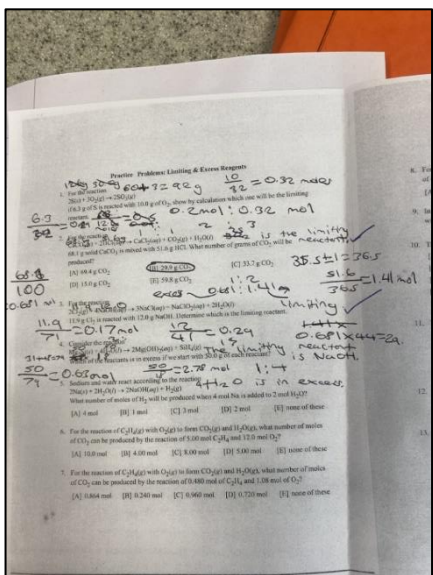 Practice Problems: Limiting & Excess Reagents
60+3=92g 10/32 = 0.32 moles
1. For the reaction
2S(s) + 3O₂(g) → 2SO₃(g)
if 6.3 g of S is reacted with 10.0 g of O₂, show by calculation which one will be the limiting
reactant.
0.2mol : 0.32 mol
6.3
2 : 3
is the limiting
reactant
2. For the reaction
CaCl₂(aq) + CO₂(g) + H₂O(l)
68.1 g solid CaCO₃ is mixed with 51.6 g HCl. What number of grams of CO₂ will be
produced?
35.5+1=36.5
[A] 69.4 g CO₂ [B] 29.9 g CO₂ [C] 33.7 g CO₂
[D] 15.0 g CO₂ [E] 59.8 g CO₂
68.1/100
=0.681 mol
1:2
0.681:1.41
51.6/36.5 = 1.41 mol
limiting
0.681x44=
3. For the reaction
→ 3NaCl(aq) + NaClO₃(aq) + 2H₂O(l)
11.9 g Cl₂ is reacted with 12.0 g NaOH. Determine which is the limiting reactant.
11.9/71 = 0.17mol 12/41 = 0.29
The limiting
reactant
is NaOH.
4. Consider the reaction
→ 2Mg(OH)₂(aq) + SiH₄(g)
of the reactants is in excess if we start with 50.0 g of each reactant?
50/79 = 0.63mol = 2.78 mol 1:4
H₂O is in excess.
5. Sodium and water react according to the reaction
2Na(s) + 2H₂O(l) → 2NaOH(aq) + H₂(g)
What number of moles of H₂ will be produced when 4 mol Na is added to 2 mol H₂O?
[A] 4 mol [B] 1 mol [C] 3 mol [D] 2 mol [E] none of these
6. For the reaction of C₂H₄(g) with O₂(g) to form CO₂(g) and H₂O(g), what number of moles
of CO₂ can be produced by the reaction of 5.00 mol C₂H₄ and 12.0 mol O₂?
[A] 10.0 mol [B] 4.00 mol [C] 8.00 mol [D] 5.00 mol [E] none of these
7. For the reaction of C₂H₄(g) with O₂(g) to form CO₂(g) and H₂O(g), what number of moles
of CO₂ can be produced by the reaction of 0.480 mol of C₂H₄ and 1.08 mol of O₂?
[A] 0.864 mol [B] 0.240 mol [C] 0.960 mol [D] 0.720 mol [E] none of these
8. Fo
of
[A
9. In
10. T
11.
12.
13.